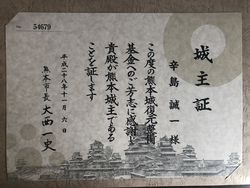 54679
城主証
辛島誠一様
この度の熊本城復元整備
基金へのご芳志に感謝し
貴殿が熊本城主である
ことを証します
平成二十八年十一月六日
熊本市長 大西一史